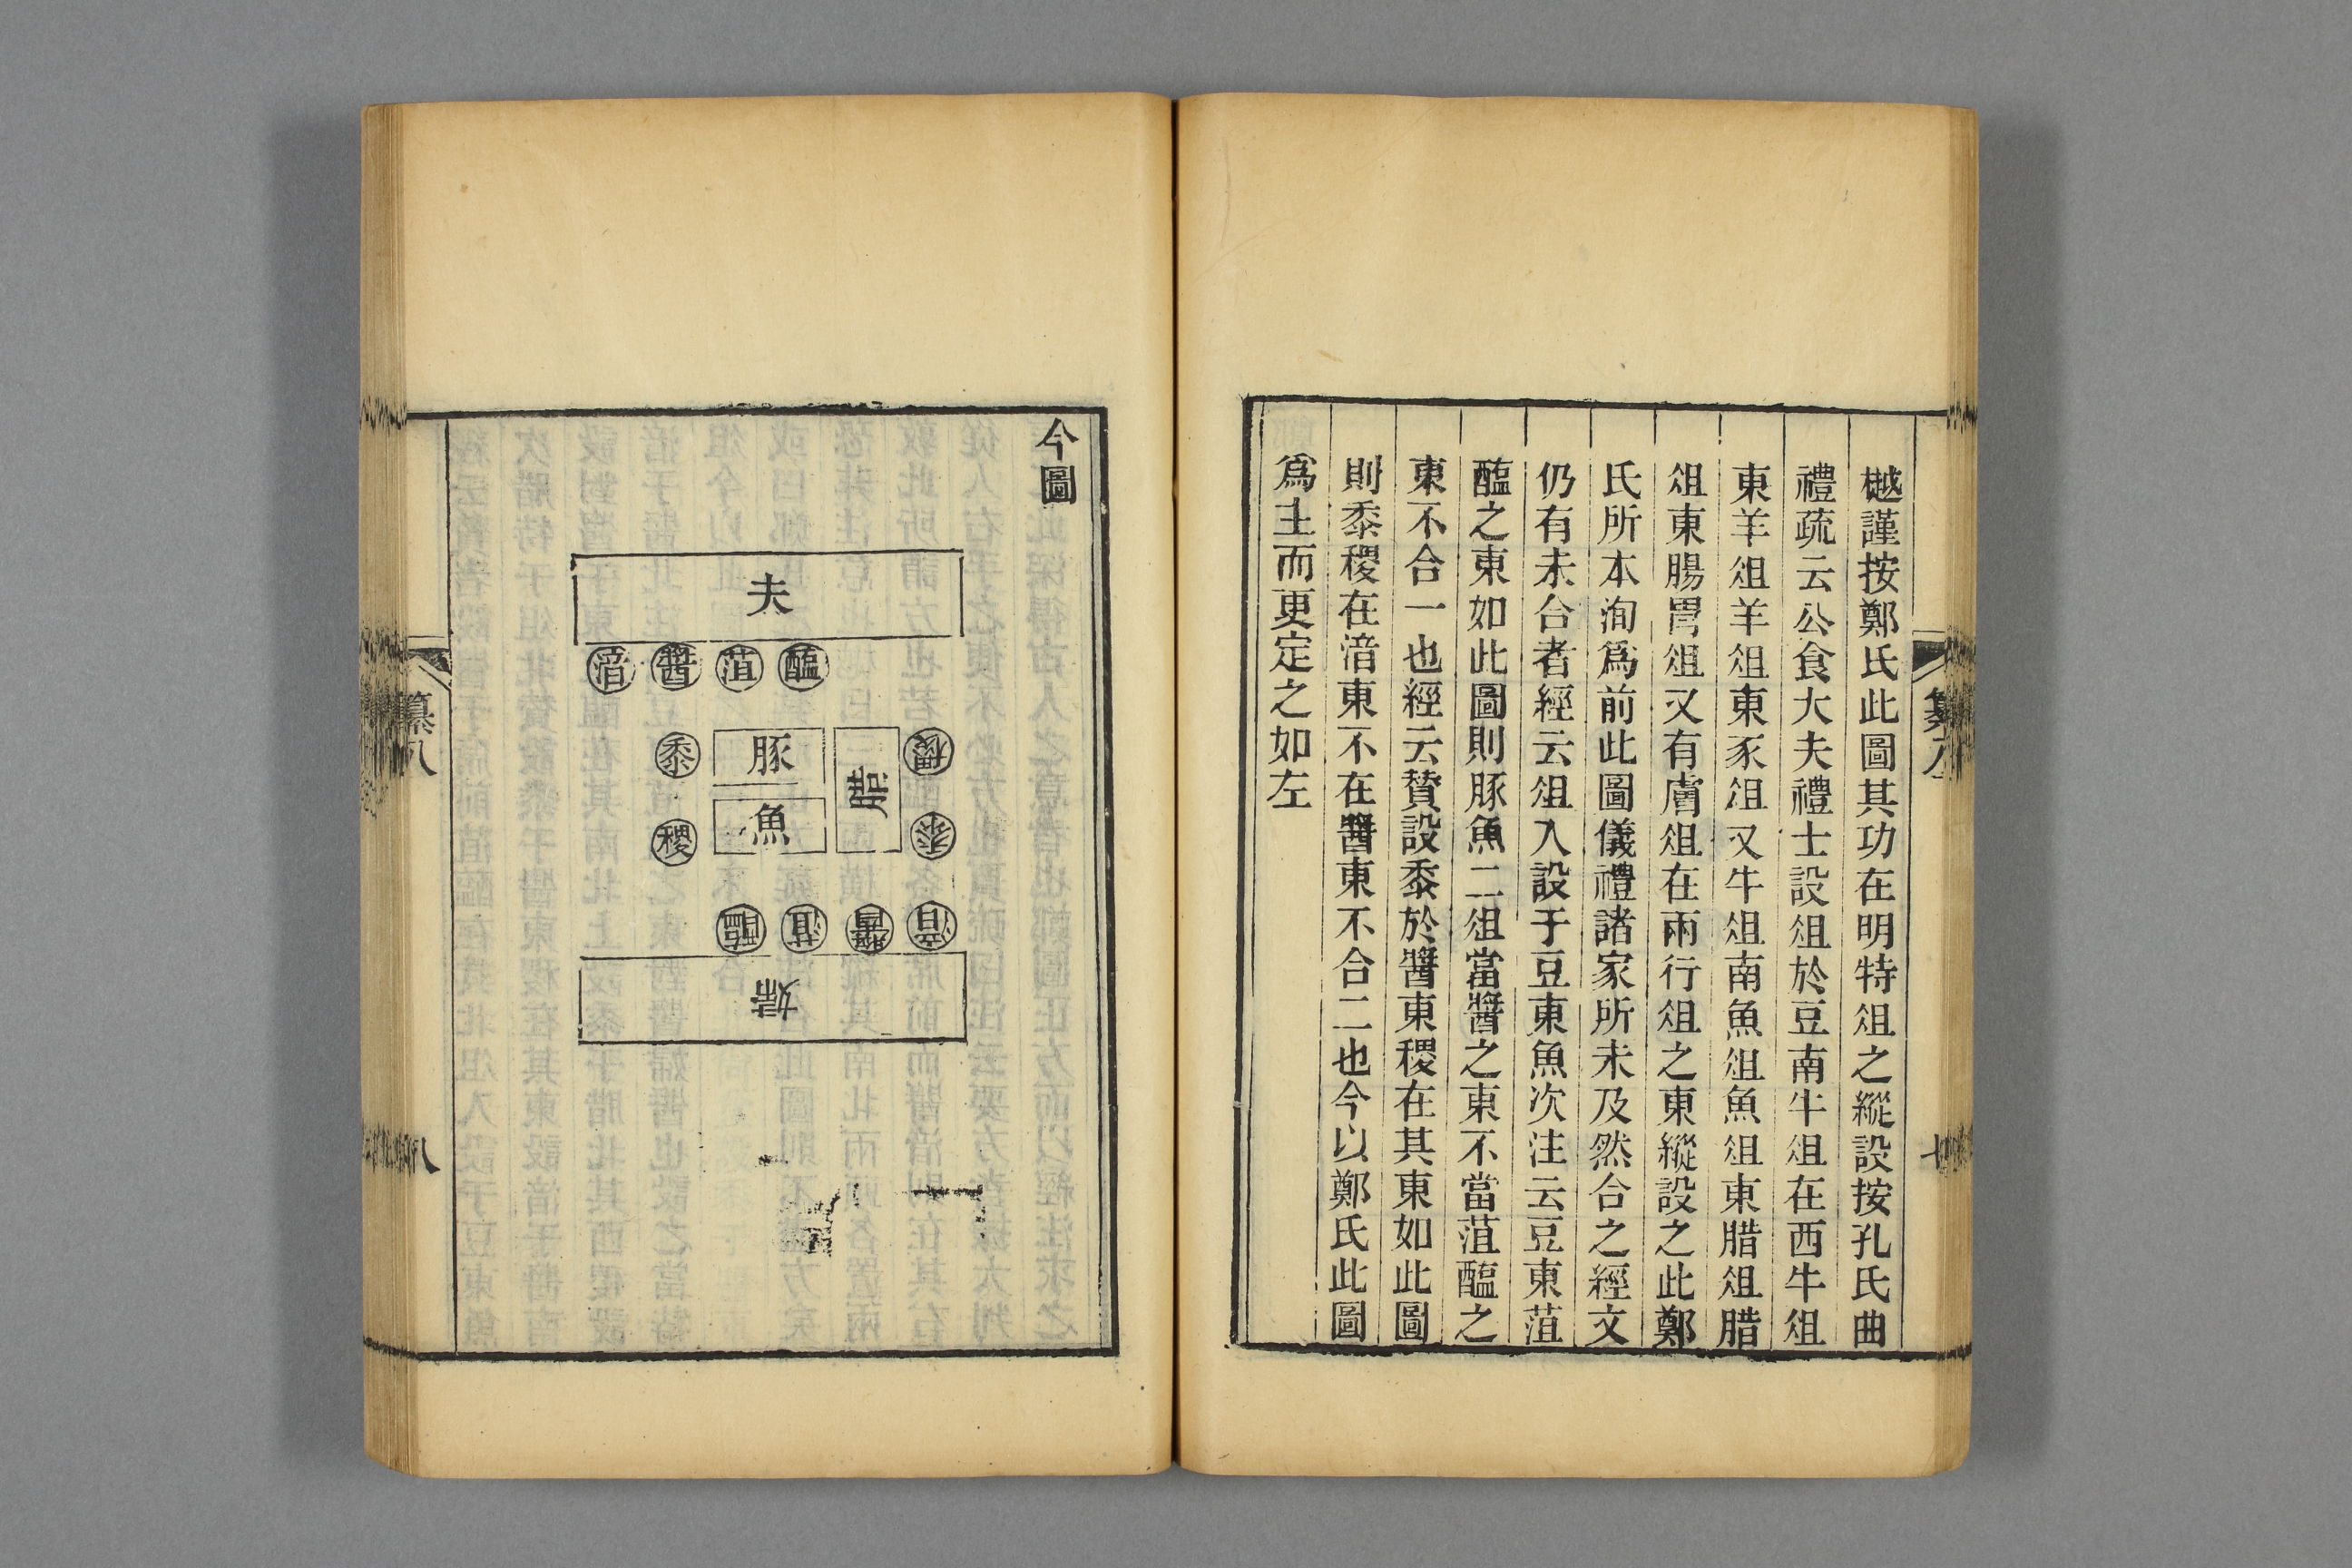 樾謹按鄭氏此圖其功在明特俎之縱設按孔氏曲
禮疏云公食大夫禮士設俎於豆南牛俎在西牛俎
東羊俎羊俎東豕俎又牛俎南魚俎魚俎東腊俎腊
俎東腸胃俎又有膚俎在兩行俎之東縱設之此鄭
氏所本洵爲前此圖儀禮諸家所未及然合之經文
仍有未合者經云俎入設于豆東魚次注云豆東菹
醢之東如此圖則豚魚二俎當醬之東不當菹醢之
東不合一也經云贊設黍於醬東稷在其東如此圖
則黍稷在湆東不在醬東不合二也今以鄭氏此圖
爲主而更定之如左
纂八
七
今圖
夫
湆 醬 菹 醢
黍 豚 腊 稷
稷 魚 黍
醢 菹 醬 湆
婦
纂八
八